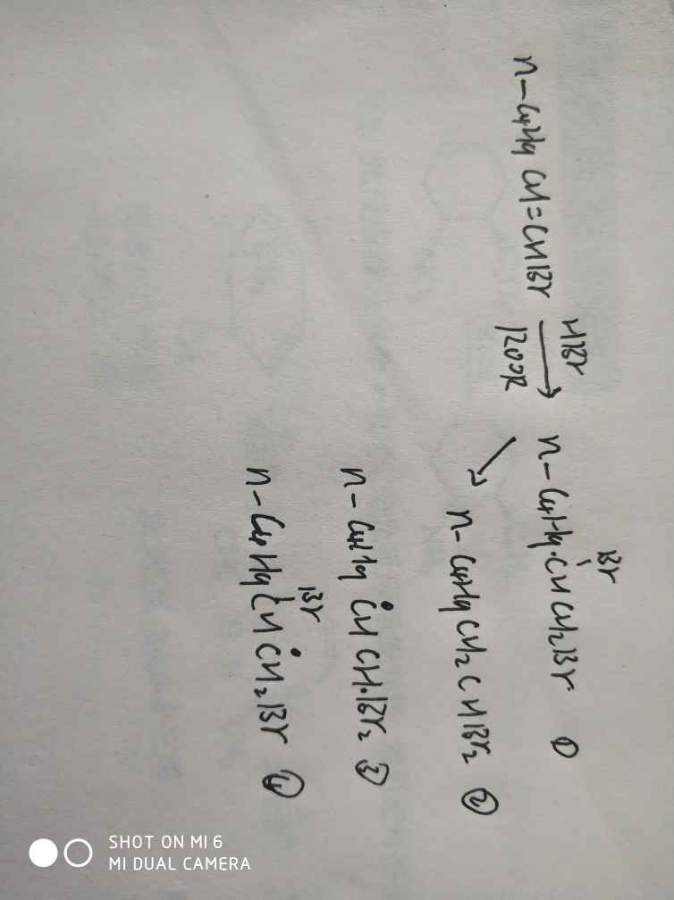 n-C₄H₉ CH=CHBr
HBr
ROOR
Br
n-C₄H₉CHCH₂Br ①
n-C₄H₉CH₂CHBr₂ ②
n-C₄H₉ĊHCHBr₂ ③
Br
n-C₄H₉CHĊH₂Br ④
SHOT ON MI 6
MI DUAL CAMERA